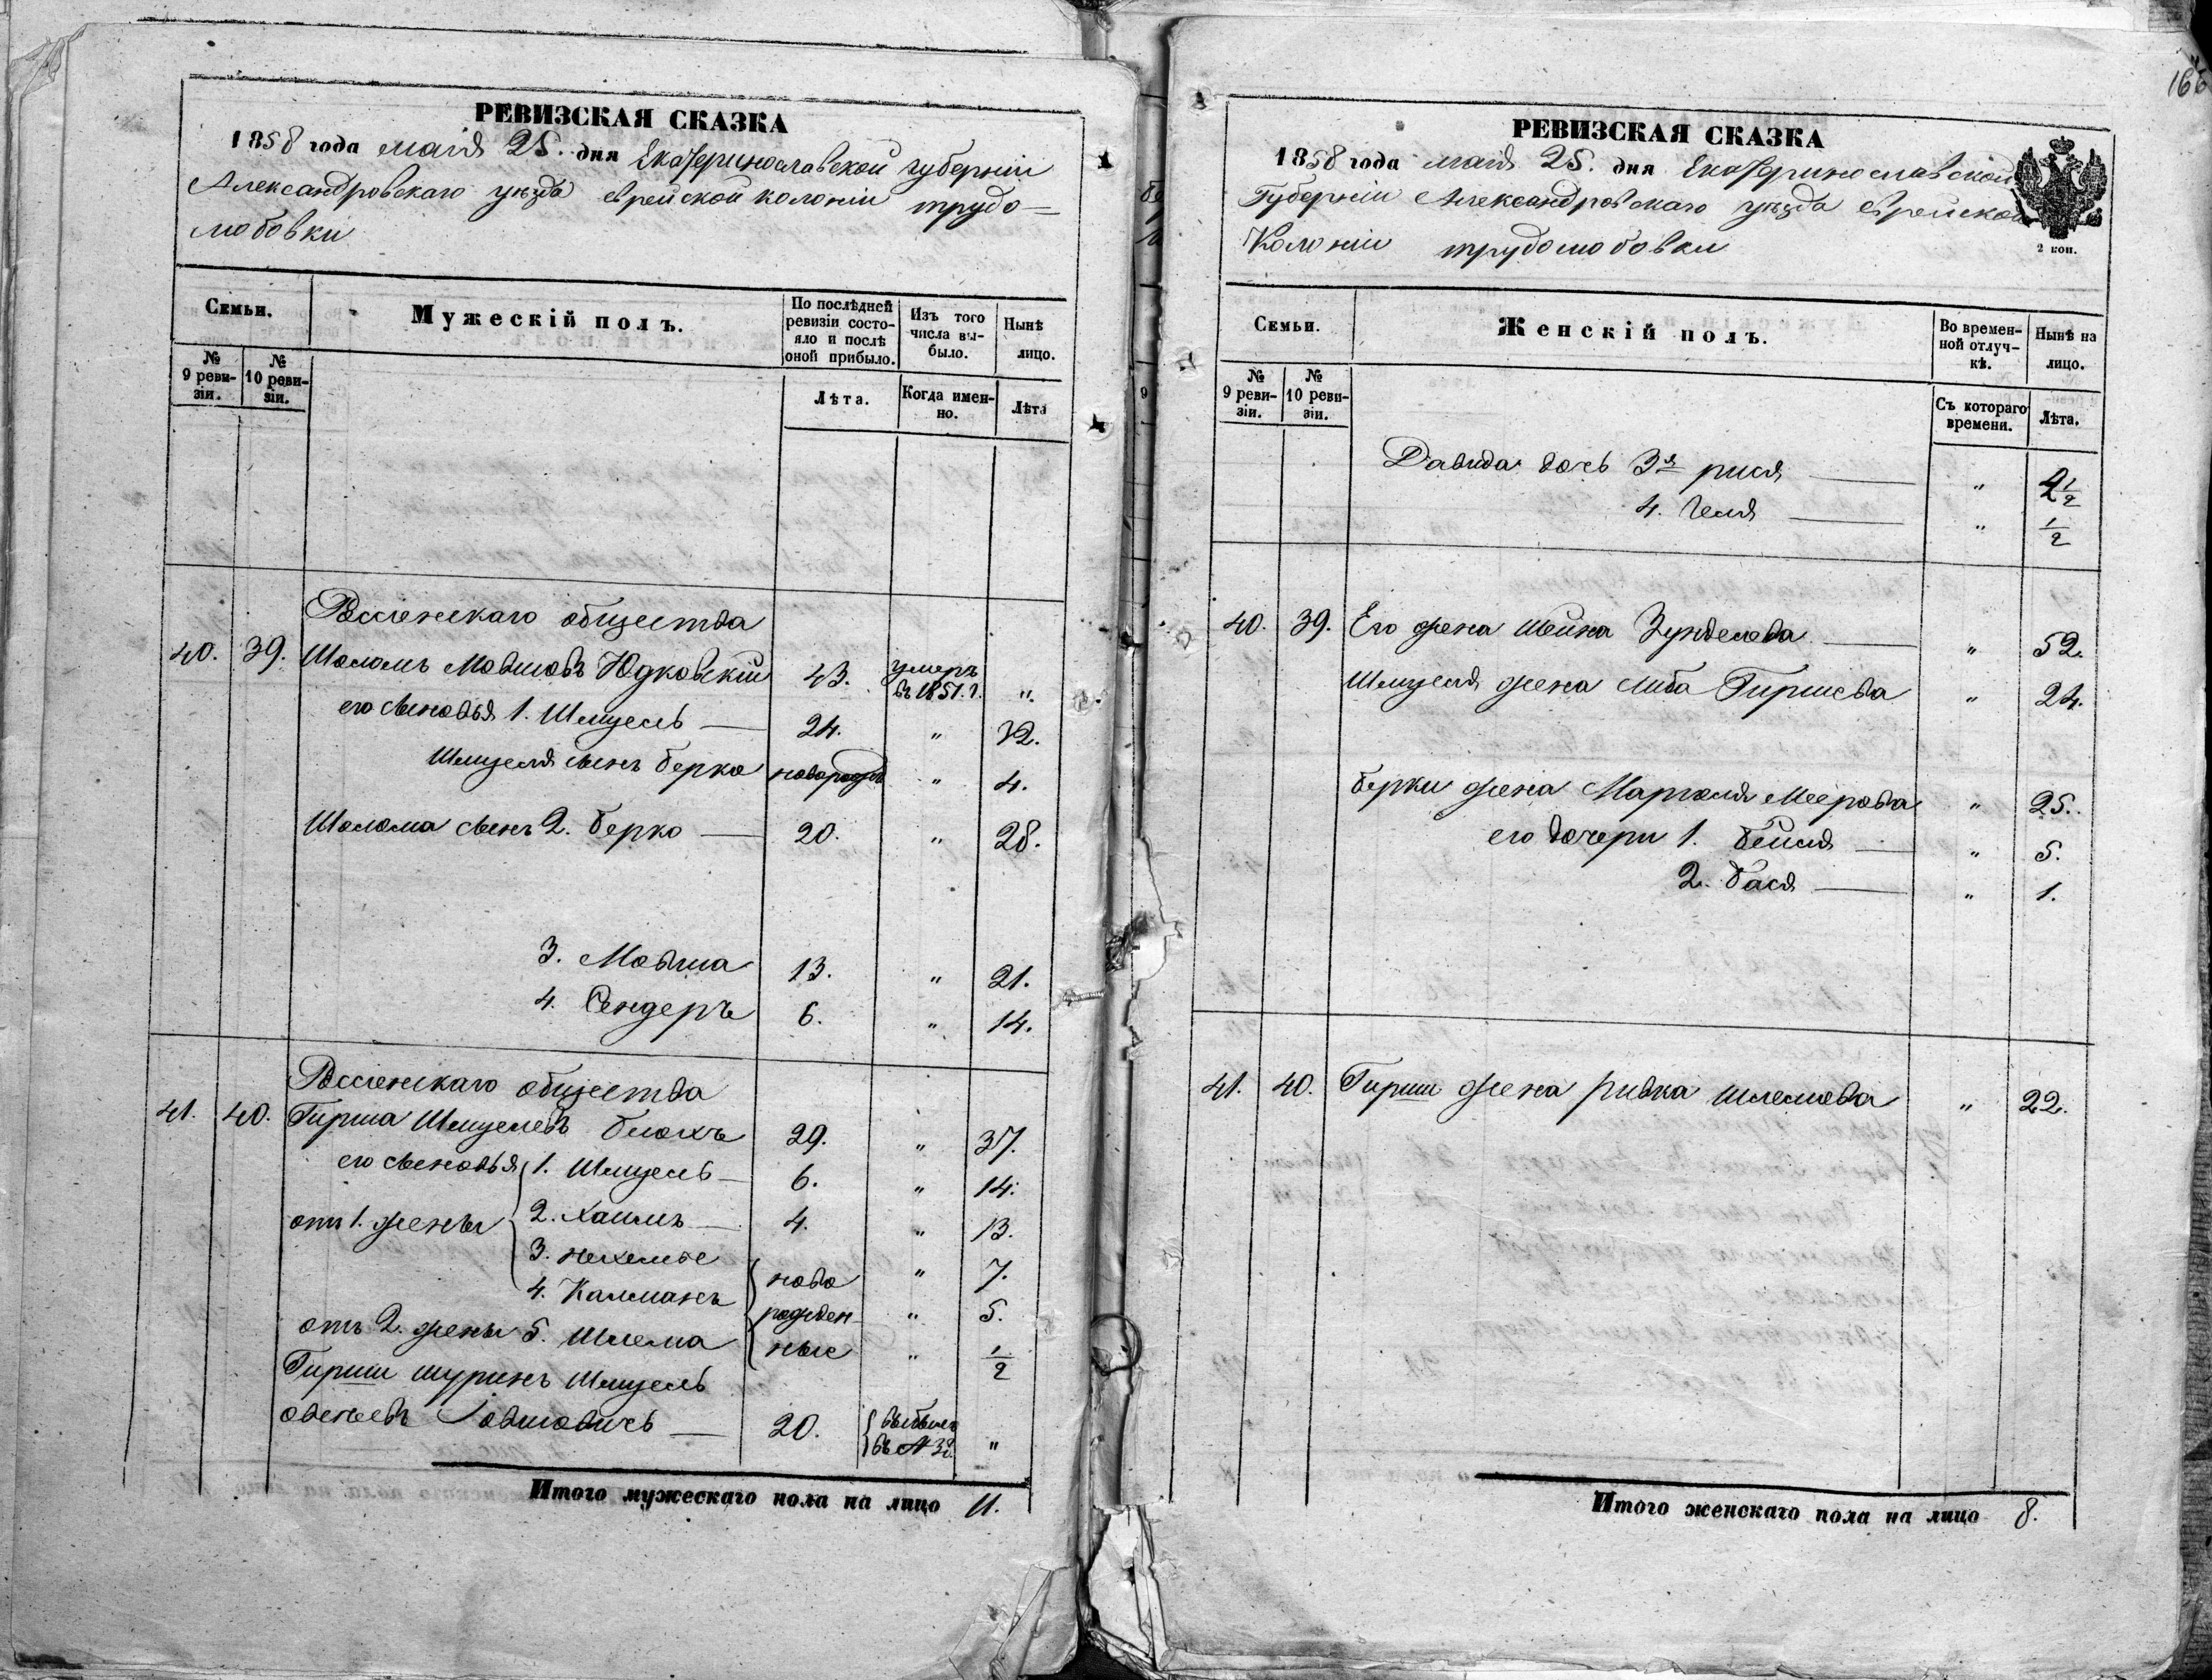 РЕВИЗСКАЯ СКАЗКА
1858 года маія 25. дня Екатеринославской губерніи
Александровскаго уѣзда еврейской колоніи трудо-
любовки
Семьи.
Мужескій полъ.
По послѣдней ревизіи состояло и послѣ оной прибыло.
Изъ того числа выбыло.
Нынѣ лицо.
№ 9 ревизіи.
№ 10 ревизіи.
Лѣта.
Когда именно.
Лѣта
Россіенскаго общества
40. 39. Шоломъ Мовшовъ Юдковскій 43. умеръ въ 1851. г. "
его сыновья 1. Шмуель — 24. " 32.
Шмуеля сынъ Берко новорожд " 4.
Шолома сынъ 2. Берко — 20. " 28.
3. Мовша 13. " 21.
4. Сендеръ 6. " 14.
Россіенскаго общества
41. 40. Гирша Шмуелевъ Блохъ 29. " 37.
его сыновья 1. Шмуель — 6. " 14.
от 1. жены 2. Хаимъ — 4. " 13.
3. Нехемье ново " 7.
4. Калманъ рожден " 5.
отъ 2. жены 5. Шлема ные " 1/2
Гирши шуринъ Шмуель
20. выбылъ въ №
"
Итого мужескаго пола на лицо 11.
166
РЕВИЗСКАЯ СКАЗКА
1858 года маія 25. дня Екатеринославской
Губерніи Александровскаго уѣзда еврейской
Колоніи трудолюбовки
2 коп.
Семьи.
Женскій полъ.
Во временной отлучкѣ.
Нынѣ на лицо.
№ 9 ревизіи.
№ 10 ревизіи.
Съ котораго времени.
Лѣта.
Давида дочь 3я рися — " 2 1/2
4. Геля — " 1/2
40. 39. Его жена Шейна Зунделева — " 52.
Шмуеля жена Либа Гиршева " 24.
Берки жена Марголя Меерова " 25.
его дочери 1. Бейля — " 5.
2. Бася — " 1.
41. 40. Гирши жена Ривка Шлемова " 22.
Итого женскаго пола на лицо 8.